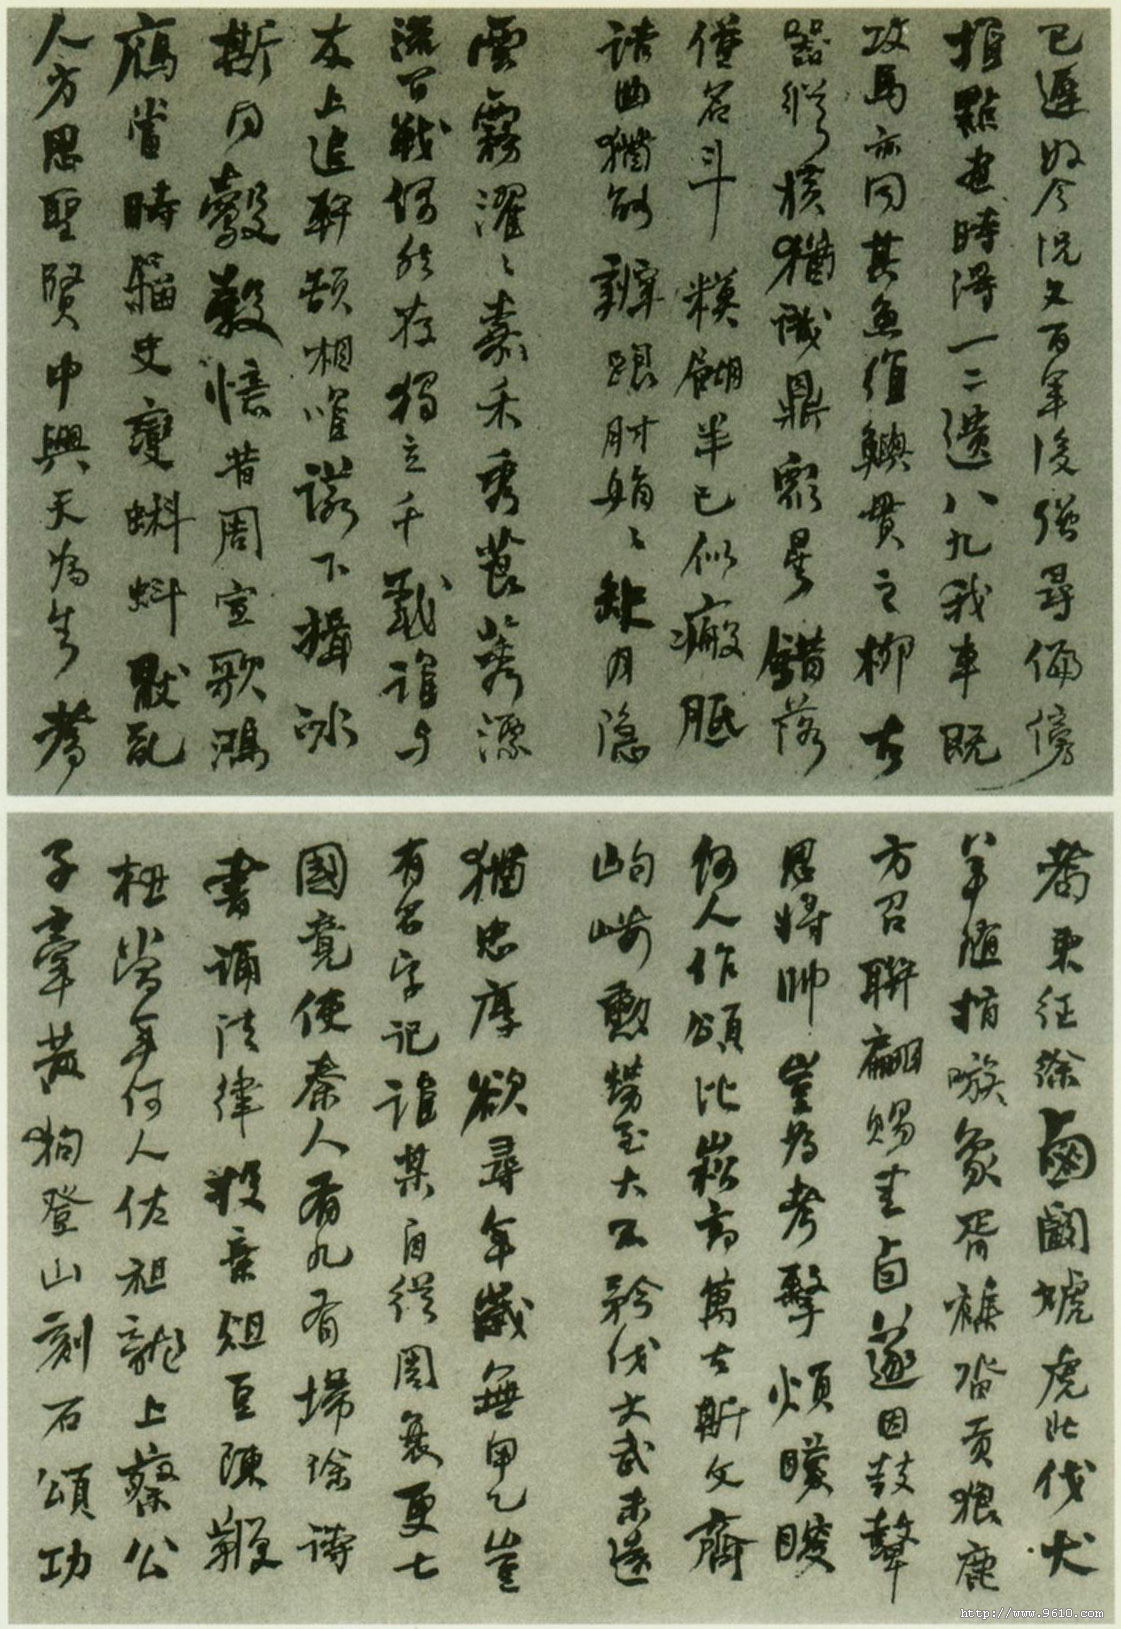 已遲如今況又百年後強尋偏傍
推點畫時得一二遺八九我車既
攻馬亦同其魚維鱮貫之柳古
器縱橫猶識鼎衆星錯落
僅名斗模糊半已似瘢胝
詰曲猶能辨跟肘娟〻缺月隱
雲霧濯〻嘉禾秀莨莠漂
流百戰偶然存獨立千載誰與
友上追軒頡相唯諾下揖冰
斯同鷇㝅憶昔周宣歌鴻
鴈當時籀史變蝌蚪厭亂
人方思聖賢中興天為生耆
耇東征徐虜闞虓虎北伐犬
羊隨指嗾象胥雜沓貢狼鹿
方召聯翩賜圭卣遂因鼓鼙
思將帥豈為考擊煩矇瞍
何人作頌比崧高萬古斯文齊
岣嶁勳勞至大不矜伐文武未遠
猶忠厚欲尋年歲無甲乙豈
有名字記誰某自從周衰更七
國竟使秦人有九有埽除詩
書誦法律投棄俎豆陳鞭
杻當年何人佐祖龍上蔡公
子牽黃狗登山刻石頌功
http://www.9610.com